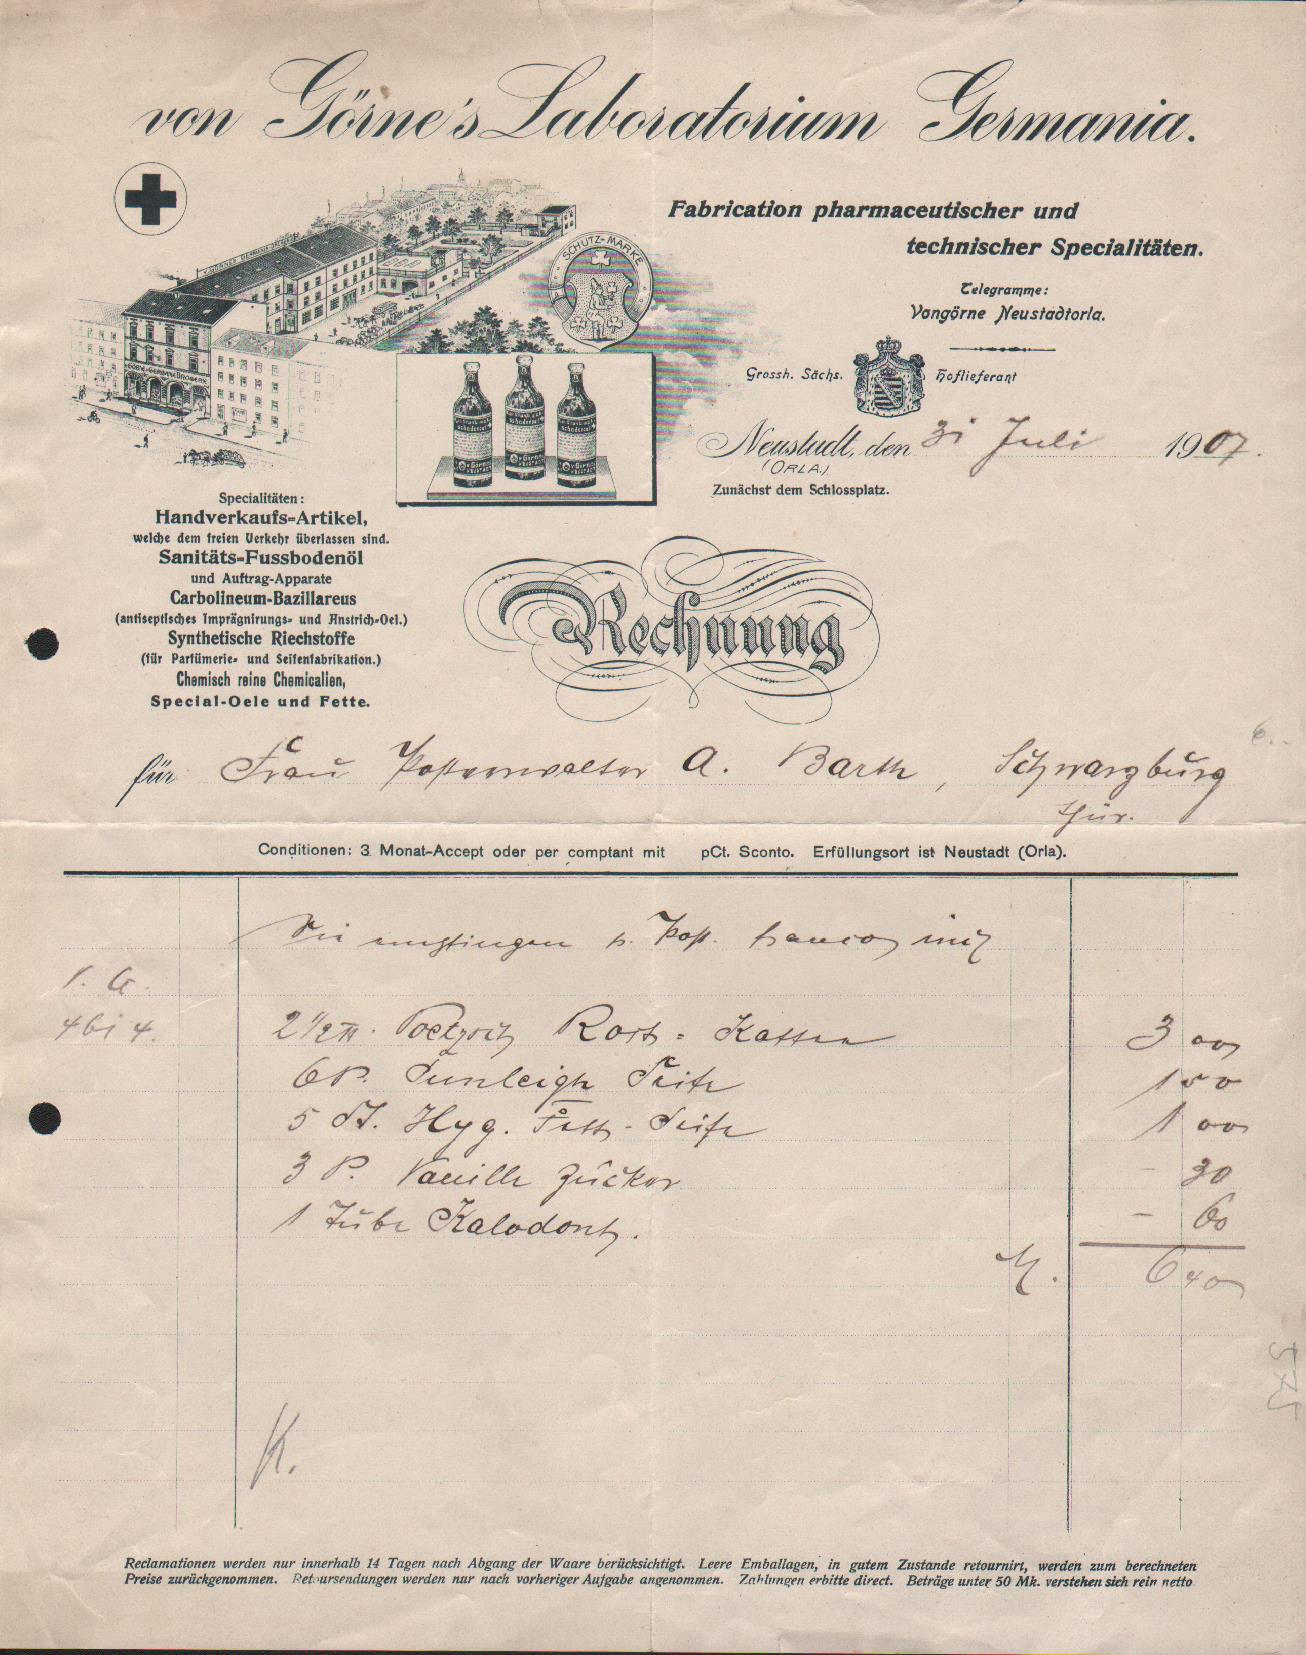 von Görne's Laboratorium Germania.
Fabrication pharmaceutischer und
technischer Specialitäten.
Telegramme:
Vongörne Neustadtorla.
SCHUTZ-MARKE
Grossh. Sächs. Hoflieferant
Neustadt, den 31 Juli 1907.
(ORLA.)
Zunächst dem Schlossplatz.
Specialitäten:
Handverkaufs-Artikel,
welche dem freien Verkehr überlassen sind.
Sanitäts-Fussbodenöl
und Auftrag-Apparate
Carbolineum-Bazillareus
(antiseptisches Imprägnirungs- und Anstrich-Oel.)
Synthetische Riechstoffe
(für Parfümerie- und Seifenfabrikation.)
Chemisch reine Chemicalien,
Special-Oele und Fette.
Rechnung
für Frau Postverwalter A. Barth, Schwarzburg
Thür.
Conditionen: 3 Monat-Accept oder per comptant mit pCt. Sconto. Erfüllungsort ist Neustadt (Orla).
Sie empfingen p. Post franco mit
2 1/2 Röst-Kaffee 3 00
6 P. Sunleigh Seife 1 50
5 St. Hyg. Fett-Seife 1 00
3 P. Vanille Zucker - 30
1 Tube Kalodont. - 60
M. 6 40
K.
Reclamationen werden nur innerhalb 14 Tagen nach Abgang der Waare berücksichtigt. Leere Emballagen, in gutem Zustande retournirt, werden zum berechneten
Preise zurückgenommen. Retoursendungen werden nur nach vorheriger Aufgabe angenommen. Zahlungen erbitte direct. Beträge unter 50 Mk. verstehen sich rein netto